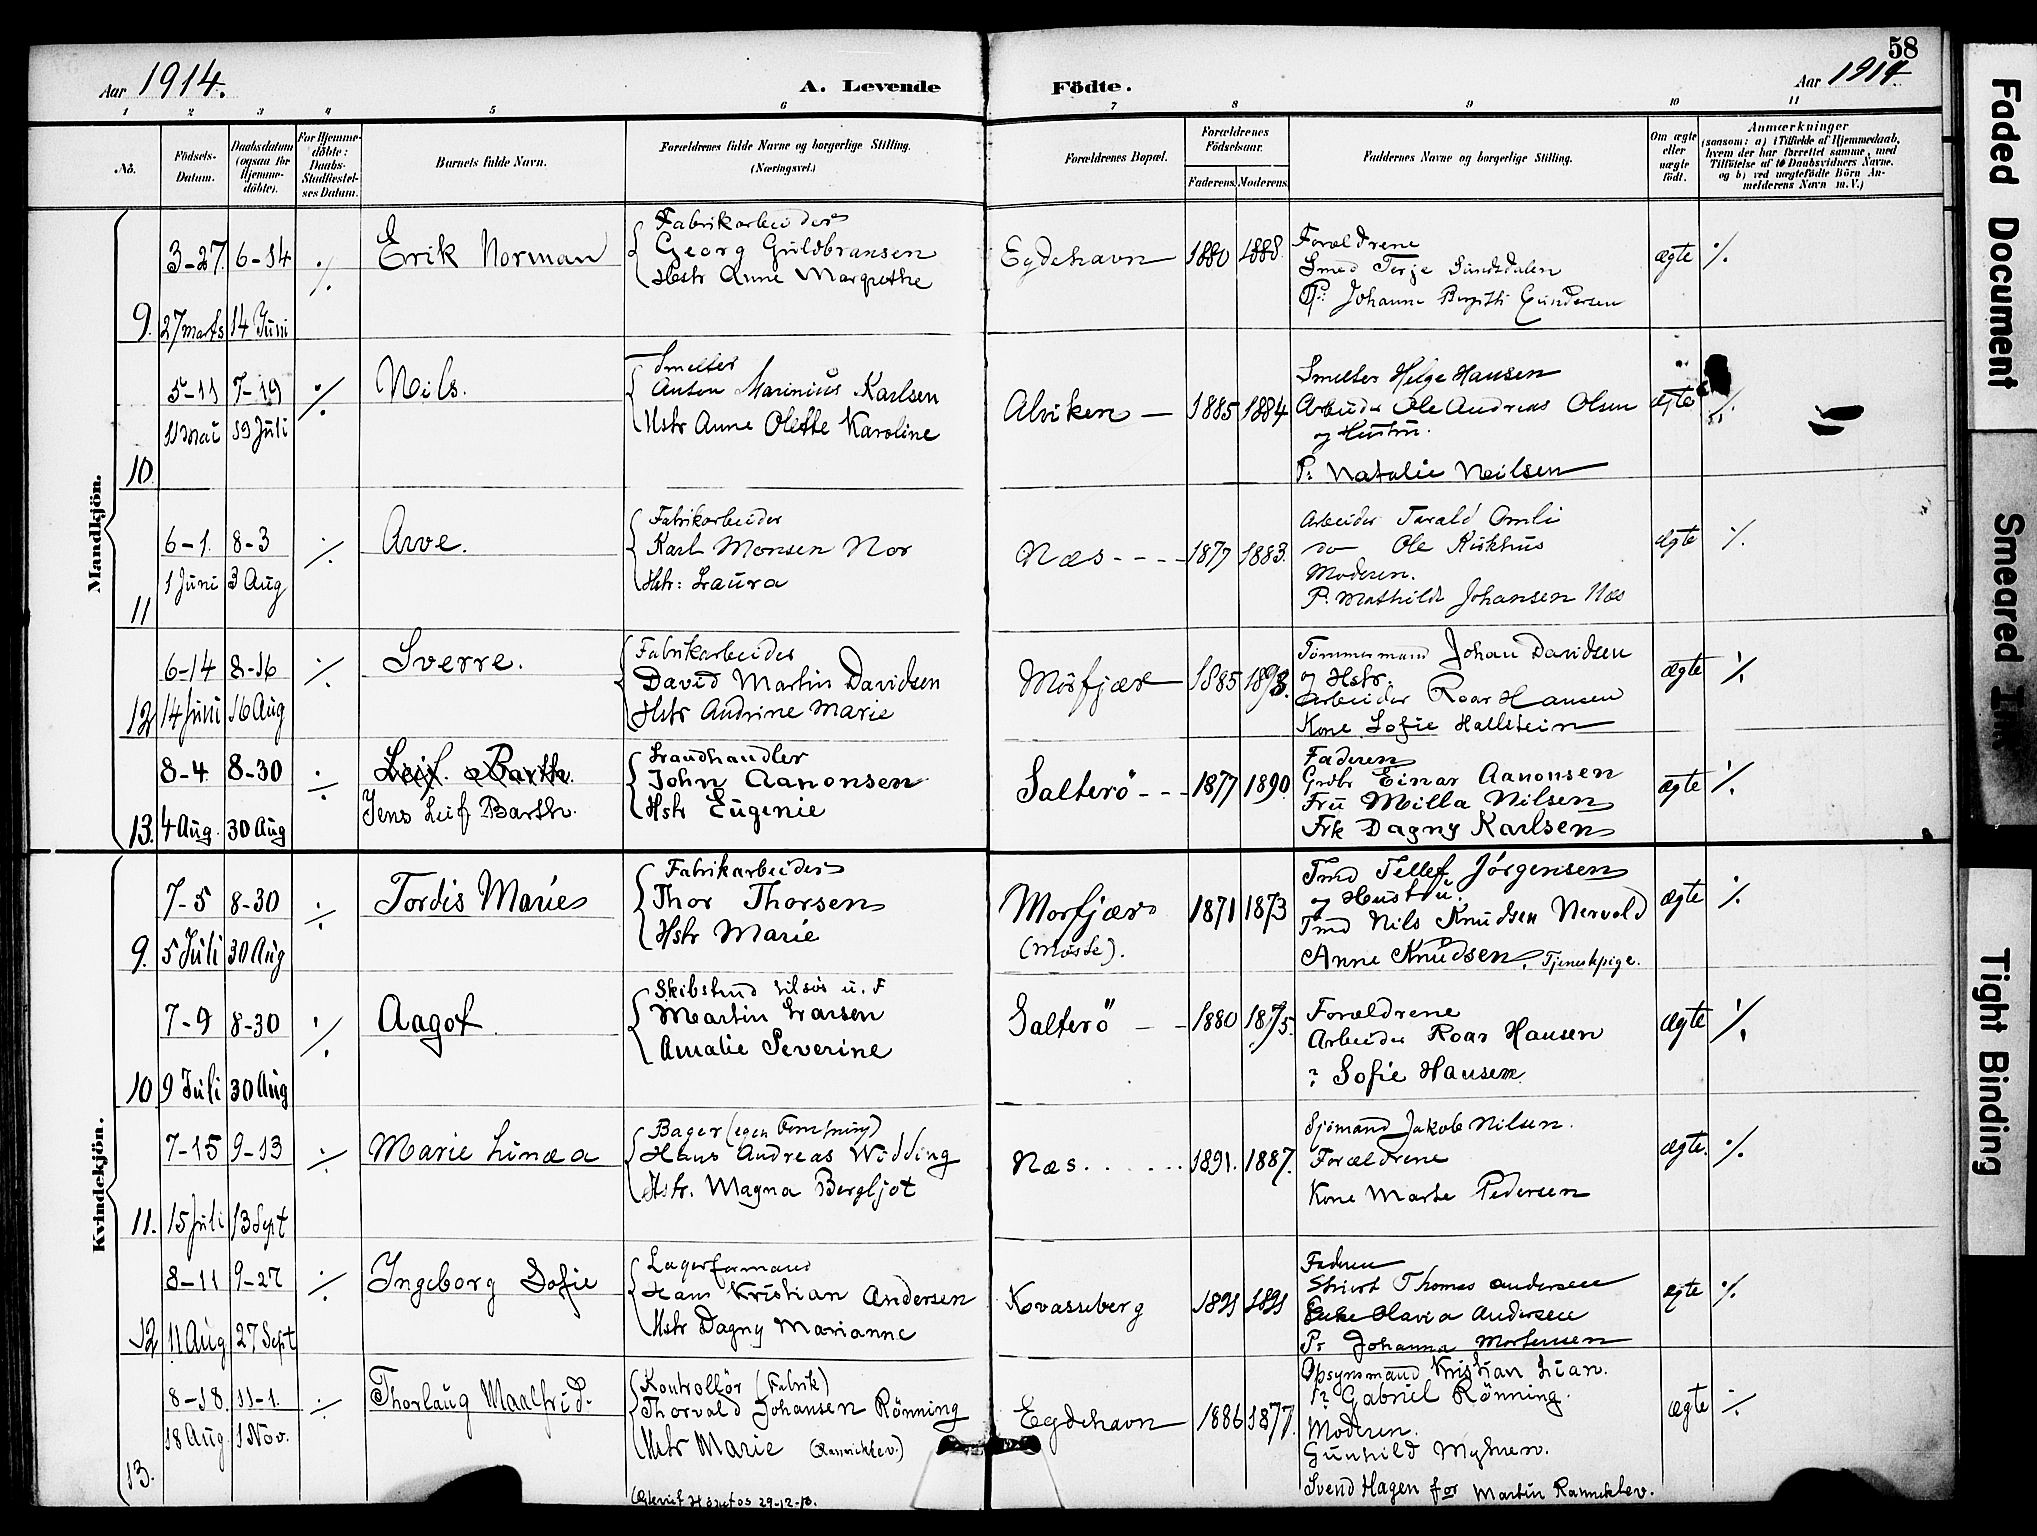 58
Aar 1914.
A. Levende
Födte.
Aar 1914
1 2 3 4 5 6 7 8 9 10 11
No.
Födsels-
Datum.
Daabsdatum
(ogsaa for
Hjemme-
döbte).
For Hjemme-
döbte:
Daabs-
Stadfæstel-
ses Datum.
Barnets fulde Navn.
Forældrenes fulde Navne og borgerlige Stilling.
(Næringsvei.)
Forældrenes Bopæl.
Forældrenes
Födselsaar.
Faderens.
Moderens.
Faddernes Navne og borgerlige Stilling.
Om ægte
eller
uægte
födt.
Anmærkninger
(saasom: a) i Tilfælde af Hjemmedaab,
hvem der har forrettet samme, med
Tilföielse af to Daabsvidners Navne.
og b) ved uægtefödte Börn An-
melderens Navn m. V.)
Mandkjön.
9. 3-27. 6-14 ./. Erik Norman
27 marts 14 Juni
Fabrikarbeider
Georg Guldbransen
Hstr Anne Margrethe
Egdehavn 1880 1888.
Forældrene
Smed Terje Sundsdalen
P: Johanne Birgitte Gundersen
ægte ./.
10. 5-11 7-19 ./. Nils.
11 mai 19 Juli
Smelter
Anton Marinius Karlsen
Hstr Anne Olette Karoline
Alviken 1885 1884
Smelter Helge Hansen
Arbeider Ole Andreas Olsen
og Hustru.
P: Natalie Neilsen
ægte ./.
11 6-1. 8-3 ./. Arve.
1 Juni 3 Aug
Fabrikarbeider
Karl Monsen Nor
Hstr: Laura
Næs 1877 1883.
Arbeider Tarald Omli
do Ole Kirkhus
Moderen.
P. Mathilde Johansen Næs
ægte ./.
12 6-14 8-16 ./. Sverre.
14 Juni 16 Aug
Fabrikarbeider
David Martin Davidsen
Hstr Andrine Marie
Mörfjær 1885 1893.
Tömmermand Johan Davidsen
og Hstr.
Arbeider Roar Hansen
Kone Sofie Hallstein
ægte ./.
13. 8-4 8-30 ./. Leif Barth.
Jens Leif Barth.
4 Aug. 30 Aug
Landhandler
John Aanonsen
Hstr Eugenie
Salterö 1877 1890
Faderen
Grdbr Einar Aanonsen
Fru Milla Nilsen
Frk Dagny Karlsen
ægte ./.
Kvindekjön.
9. 7-5 8-30 ./. Tordis Marie
5 Juli 30 Aug
Fabrikarbeider
Thor Thorsen
Hstr Marie
Morfjær
1871 1873
Tmd Tellef Jörgensen
og Hustru.
Tmd Nils Knudsen Nervold
Anne Knudsen, Tjenestpige.
ægte ./.
10. 7-9 8-30 ./. Aagot
9 Juli 30 Aug
Martin Larsen
Amalie Severine
Salterö 1880 1875.
Forældrene
Arbeider Roar Hansen
Sofie Hansen
ægte ./.
11. 7-15 9-13 ./. Marie Linæa
15 Juli 13 Sept
Bager (egen Forretning)
Hans Andreas Widding
Hstr. Magna Bergljot
Næs 1891. 1887.
Sjömand Jakob Nilsen.
Forældrene
Kone Marte Pedersen
ægte. ./.
12 8-11 9-27 ./. Ingeborg Sofie
11 Aug 27 Sept
Lagerformand
Hans Kristian Andersen
Hstr Dagny Marianne
Kvasseberg 1891 1891
Faderen
Thomas Andersen
Enke Olavia Andersen
P: Johanna Mortensen
ægte ./.
13. 8-18. 11-1. ./. Thorlaug Maalfrid.
18 Aug 1 Nov.
Kontrollör (Fabrik)
Thorvald Johansen Rönning
Hstr Marie (Ranneklev.)
29-12-13.
Egdehavn 1886 1877.
Opsynsmand Kristian Lian.
Gabriel Rönning.
Moderen.
Gunhild Myhren.
Svend Hagen for Martin Ranneklev.
ægte ./.
Faded Document
Smeared Ink
Tight Binding